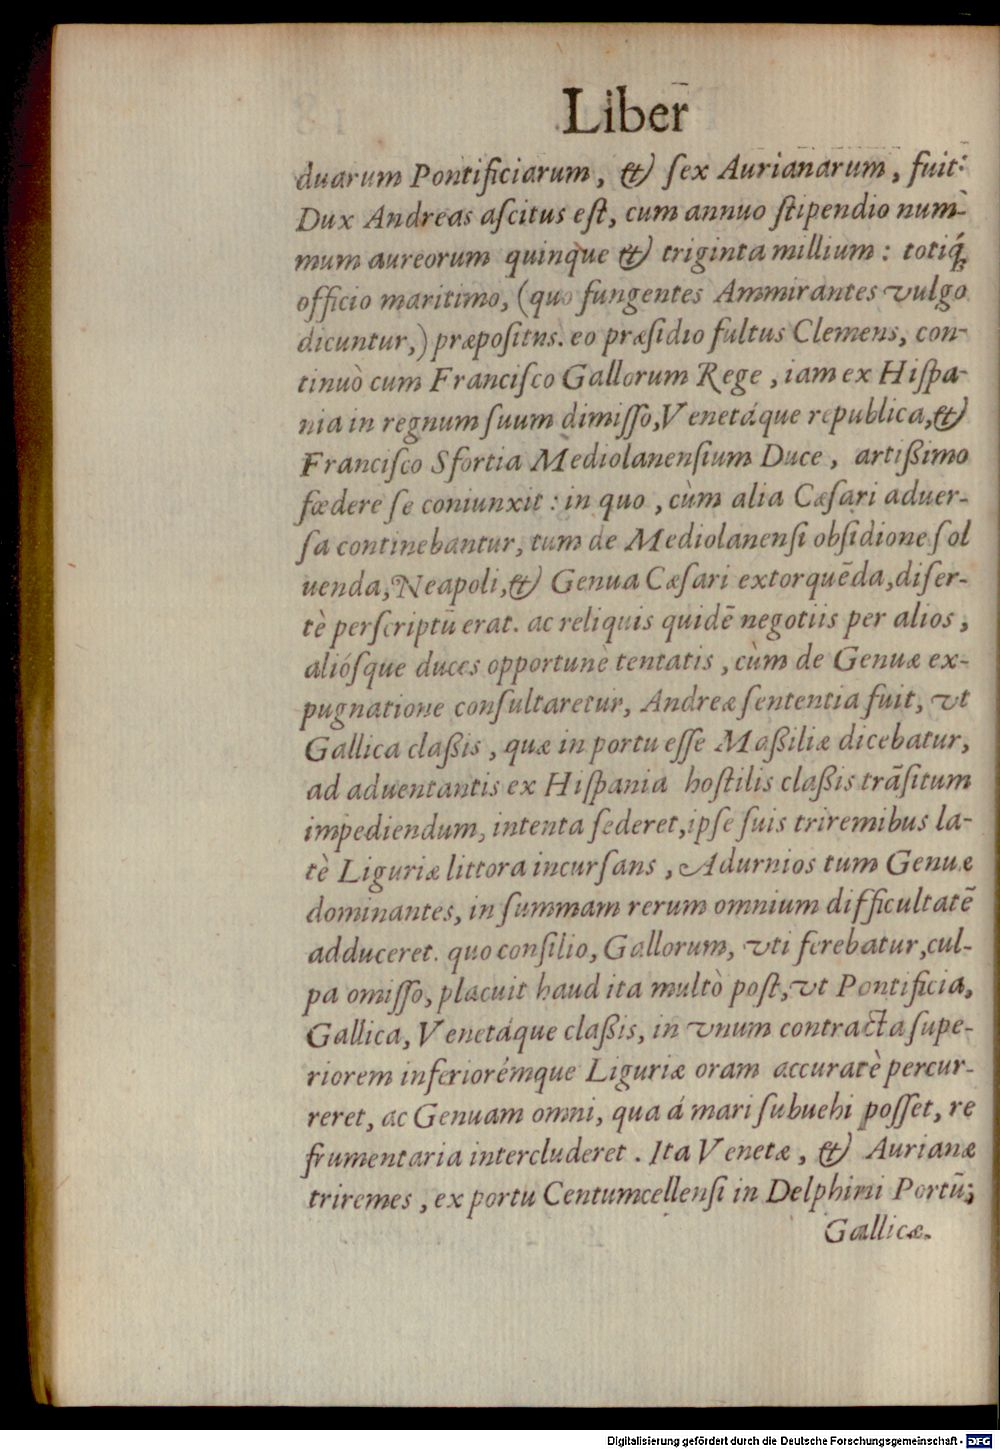 Liber
duarum Pontificiarum, & sex Aurianarum, fuit:
Dux Andreas ascitus est, cum annuo stipendio num-
mum aureorum quinque & triginta millium: totiq́;
officio maritimo, (quo fungentes Ammirantes vulgo
dicuntur,) præpositus. eo præsidio fultus Clemens, con-
tinuò cum Francisco Gallorum Rege, iam ex Hispa-
nia in regnum suum dimisso, Venetáque republica, &
Francisco Sfortia Mediolanensium Duce, artißimo
fœdere se coniunxit: in quo, cùm alia Cæsari aduer-
sa continebantur, tum de Mediolanensi obsidione sol
uenda, Neapoli, & Genua Cæsari extorquēda, diser-
tè perscriptū erat. ac reliquis quidē negotiis per alios,
aliósque duces opportunè tentatis, cùm de Genuæ ex-
pugnatione consultaretur, Andreæ sententia fuit, vt
Gallica claßis, quæ in portu esse Maßiliæ dicebatur,
ad aduentantis ex Hispania hostilis claßis trāsitum
impediendum, intenta sederet, ipse suis triremibus la-
tè Liguriæ littora incursans, Adurnios tum Genuæ
dominantes, in summam rerum omnium difficultatē
adduceret. quo consilio, Gallorum, vti ferebatur, cul-
pa omisso, placuit haud ita multò post, vt Pontificia,
Gallica, Venetáque claßis, in vnum contracta supe-
riorem inferiorémque Liguriæ oram accuratè percur-
reret, ac Genuam omni, qua á mari subuehi posset, re
frumentaria intercluderet. Ita Venetæ, & Aurianæ
triremes, ex portu Centumcellensi in Delphini Portū;
Gallicæ.
Digitalisierung gefördert durch die Deutsche Forschungsgemeinschaft - DFG